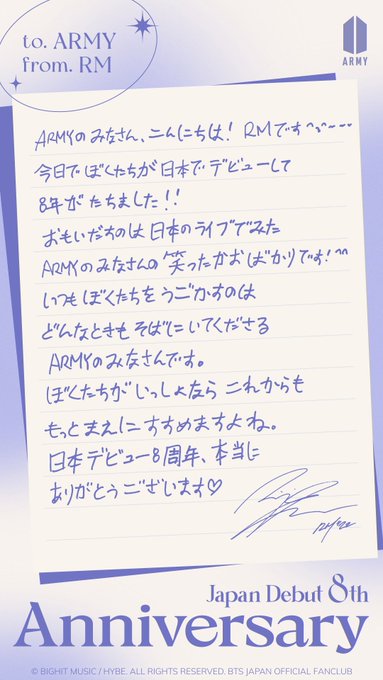 to. ARMY
from. RM
ARMY
ARMYのみなさん、こんにちは! RMです^ᵕ^~~~
今日でぼくたちが日本でデビューして
8年がたちました!!
おもいだすのは日本のライブでみた
ARMYのみなさんの笑ったかおばかりです!^^
いつもぼくたちをうごかすのは
どんなときもそばにいてくださる
ARMYのみなさんです。
ぼくたちがいっしょなら これからも
もっとまえにすすめますよね。
日本デビュー8周年、本当に
ありがとうございます♡
Japan Debut 8th
Anniversary
© BIGHIT MUSIC / HYBE. ALL RIGHTS RESERVED. BTS JAPAN OFFICIAL FANCLUB